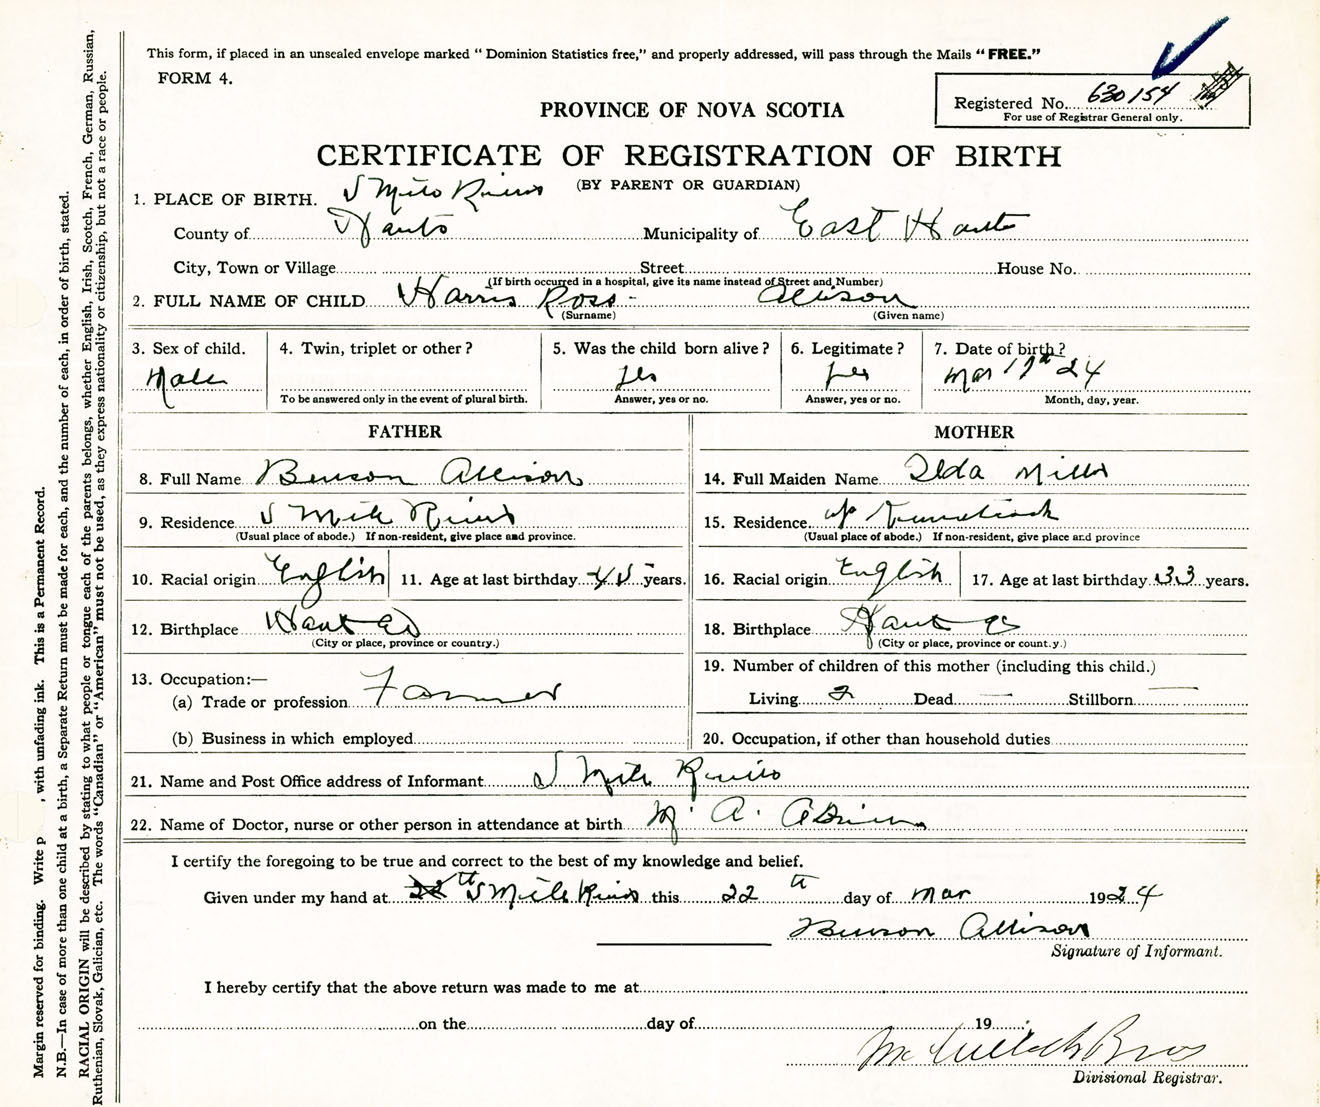 This form, if placed in an unsealed envelope marked “ Dominion Statistics free,” and properly addressed, will pass through the Mails “FREE.”
FORM 4.
Registered No. 630154
For use of Registrar General only.
PROVINCE OF NOVA SCOTIA
CERTIFICATE OF REGISTRATION OF BIRTH
(BY PARENT OR GUARDIAN)
1. PLACE OF BIRTH. 5 Mile River
County of Hants Municipality of East Hants
City, Town or Village Street House No.
(If birth occurred in a hospital, give its name instead of Street and Number)
2. FULL NAME OF CHILD Harris Ross - Allison
(Surname) (Given name)
3. Sex of child. 4. Twin, triplet or other? 5. Was the child born alive? 6. Legitimate? 7. Date of birth?
Male yes yes Mar 17th 24
To be answered only in the event of plural birth. Answer, yes or no. Answer, yes or no. Month, day, year.
FATHER MOTHER
8. Full Name Benson Allison 14. Full Maiden Name Ilda Mills
9. Residence 5 Mile River 15. Residence up Kennetcook
(Usual place of abode.) If non-resident, give place and province. (Usual place of abode.) If non-resident, give place and province
10. Racial origin English 11. Age at last birthday 45 years. 16. Racial origin English 17. Age at last birthday 33 years.
12. Birthplace Hants Co 18. Birthplace Hants Co
(City or place, province or country.) (City or place, province or count.y.)
13. Occupation:— 19. Number of children of this mother (including this child.)
(a) Trade or profession Farmer Living 2 Dead — Stillborn —
(b) Business in which employed 20. Occupation, if other than household duties
21. Name and Post Office address of Informant 5 Mile River
22. Name of Doctor, nurse or other person in attendance at birth A.
I certify the foregoing to be true and correct to the best of my knowledge and belief.
Given under my hand at 5 Mile River this 22th day of Mar 1924
Benson Allison
Signature of Informant.
I hereby certify that the above return was made to me at
on the day of 19
McCulloch Bros
Divisional Registrar.
Margin reserved for binding. Write p , with unfading ink. This is a Permanent Record.
N.B.—In case of more than one child at a birth, a Separate Return must be made for each, and the number of each, in order of birth, stated.
RACIAL ORIGIN will be described by stating to what people or tongue each of the parents belongs, whether English, Irish, Scotch, French, German, Russian,
Ruthenian, Slovak, Galician, etc. The words “Canadian” or “American” must not be used, as they express nationality or citizenship, but not a race or people.